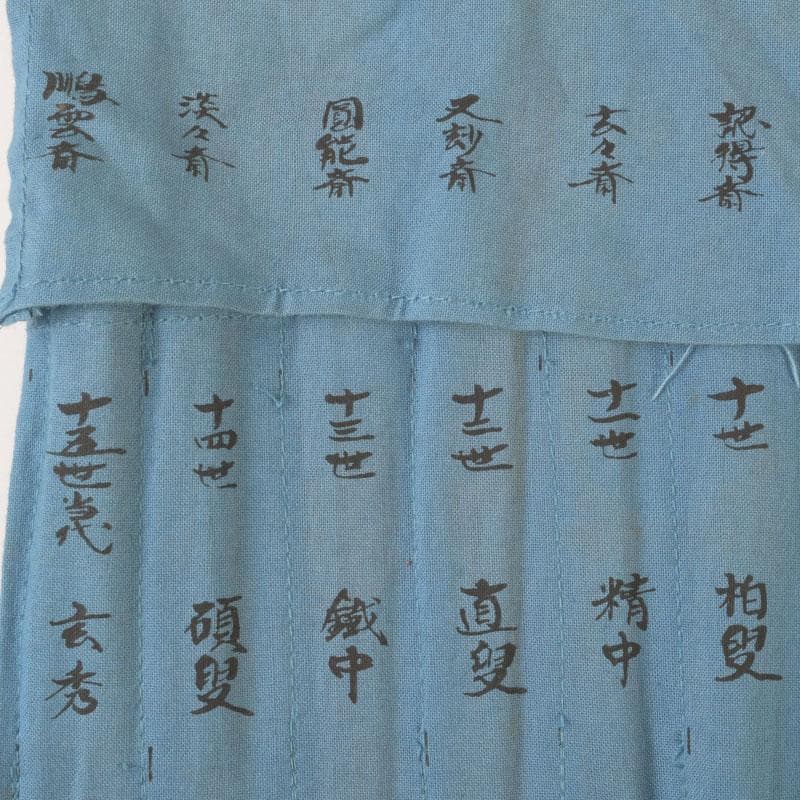 認得斎
玄々斎
又玅斎
圓能斎
淡々斎
鵬雲斎
十世 柏叟
十一世 精中
十二世 直叟
十三世 鐵中
十四世 碩叟
十五世当代 玄秀